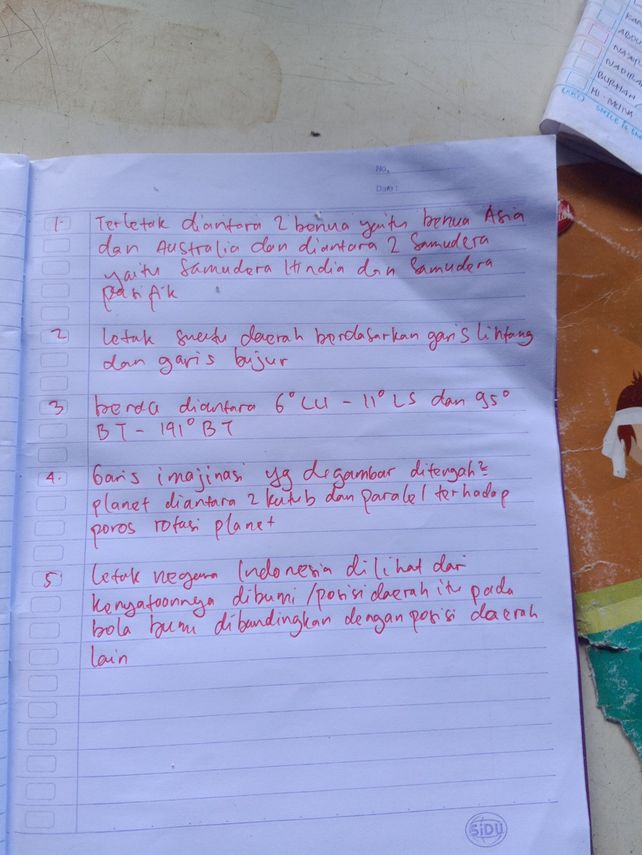 No.
Date:
1. Terletak diantara 2 benua yaitu benua Asia
dan Australia dan diantara 2 Samudera
yaitu Samudera Hindia dan Samudera
pasifik
2 Letak suatu daerah berdasarkan garis lintang
dan garis bujur
3 berda diantara 6° LU - 11° LS dan 95°
BT - 191° BT
4. Garis imajinasi yg digambar ditengah²
planet diantara 2 kutub dan paralel terhadap
poros rotasi planet
5 Letak negara Indonesia dilihat dari
kenyataannya dibumi / posisi daerah itu pada
bola bumi dibandingkan dengan posisi daerah
lain
SiDU